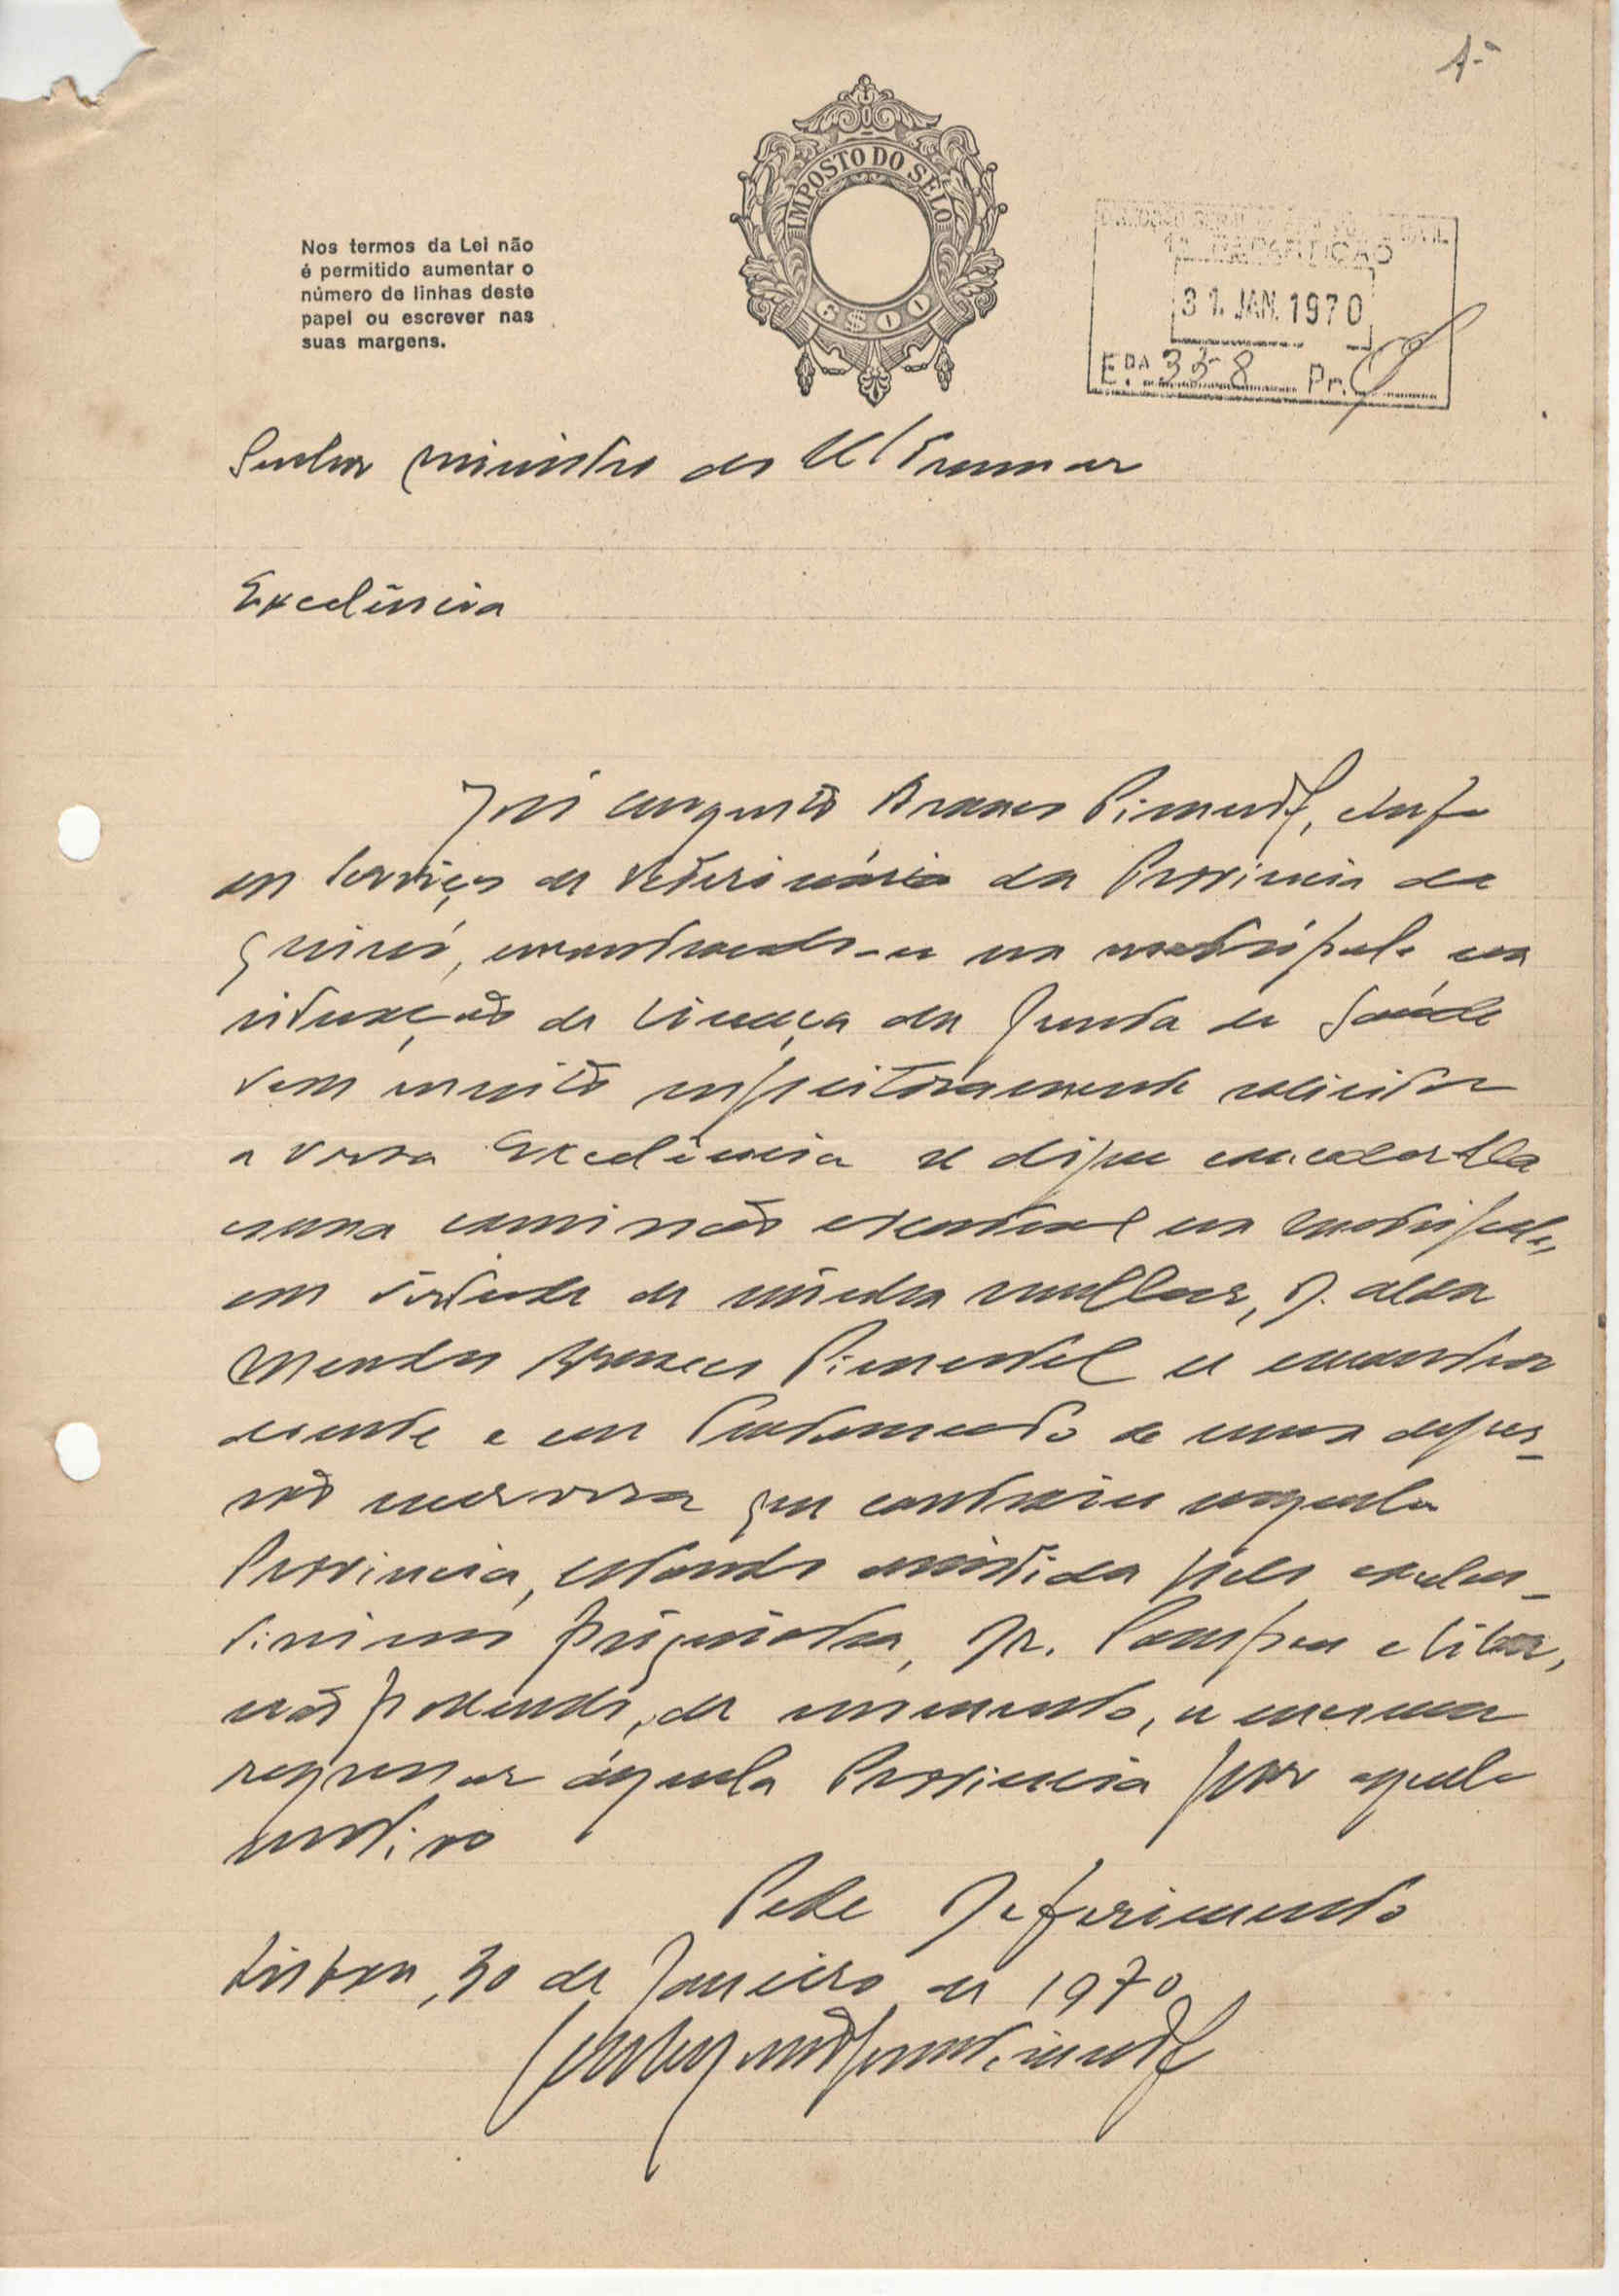 1ª
IMPOSTO DO SELO
6$00
Nos termos da Lei não
é permitido aumentar o
número de linhas deste
papel ou escrever nas
suas margens.
1ª REPARTIÇÃO
31. JAN. 1970
E.DA 358 Pr.
Senhor Ministro do Ultramar
Excelência
José Augusto Pimentel, chefe
dos Serviços de Veterinária da Província da
Guiné, encontrando-se na metrópole na
situação de licença da Junta de Saúde
vem muito respeitosamente solicitar
a Vossa Excelência se digne conceder-lhe
uma comissão eventual na Metrópole,
em virtude de minha mulher, D. Alda
Mendes Pimentel se encontrar
doente e em tratamento de uma depres-
são nervosa que contraiu naquela
Província, estando assistida pelo
psiquiatra, Dr. Pompeu e Silva,
não podendo, de momento, a mesma
regressar àquela Província por aquele
motivo
Pede Deferimento
Lisboa, 30 de Janeiro de 1970